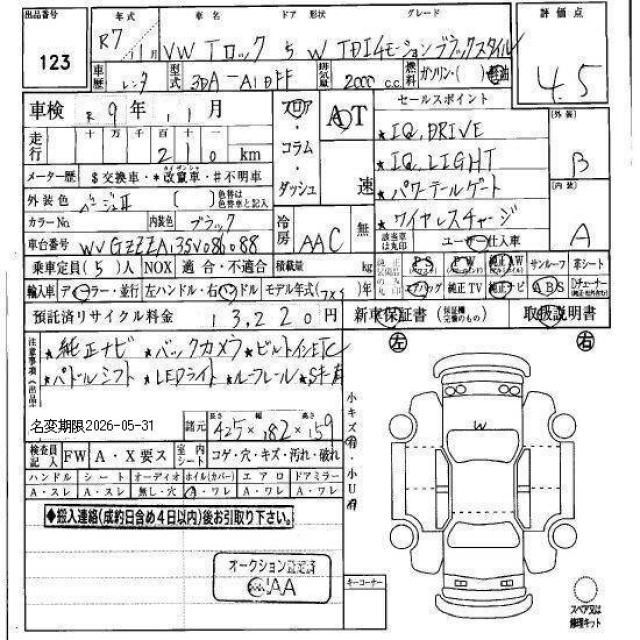 出品番号 年式 車名 ドア 形状 グレード 評価点
123 R7 11月 VW Tロック 5 W TDI 4モーション ブラックスタイル 4.5
車歴 レンタ 型式 3DA-A1DFF 排気量 2000 c.c. 燃料 ガソリン・( )軽油
車検 R 9年 11月 フロア・コラム・ダッシュ AT 速 セールスポイント
走行 十 万 千 百 十 一
210 km
★IQ.DRIVE (外装) B
★IQ.LIGHT
★パワーテールゲート (内装) A
★ワイヤレスチャージ
メーター歴 $交換車・*改竄車・#不明車
外装色 ベージュII ( ) 色替は色替車と記入
カラーNo. 内装色 ブラック 冷房 AAC 無 該当車は丸印 ユーザー仕入車
車台番号 WVGZZZA13SV086088
乗車定員(5)人 NOX 適合・不適合 積載量 kg PS PW 純正AW サンルーフ 革シート
輸入車 ディーラー・並行 左ハンドル・右ハンドル モデル年式( )年 エアバッグ 純正TV 純正ナビ ABS Dチューナー
預託済リサイクル料金 13,220円 新車保証書 取扱説明書
注意事項 ★純正ナビ ★バックカメラ ★ビルトインETC
★パドルシフト ★LEDライト ★ルーフレール
左 右
名変期限2026-05-31 諸元 長さ 幅 高さ 425×182×159
小キズ有・小U有
検査員記入 FW A・X要ス 室内シート コゲ・穴・キズ・汚れ・破れ
ハンドル シート オーディオ ホイル(カバー) エアロ ドアミラー
A・スレ A・スレ 無し・穴 A・ワレ A・ワレ A・ワレ
W
◆搬入連絡(成約日含め4日以内)後お引取り下さい。
オークション設定済
キーコーナー
スペア又は
修理キット